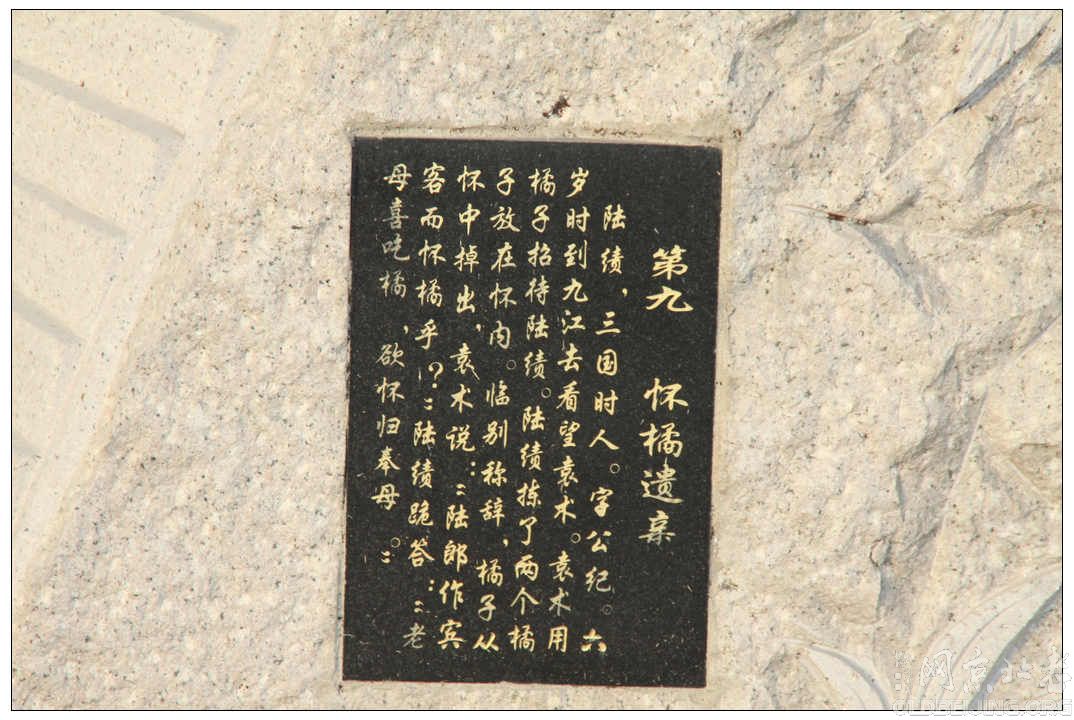 第九 怀橘遗亲
陆绩，三国时人。字公纪。六
岁时到九江去看望袁术。袁术用
橘子招待陆绩。陆绩拣了两个橘
子放在怀内。临别称辞，橘子从
怀中掉出，袁术说："陆郎作宾
客而怀橘乎！？"陆绩跪答："老
母喜吃橘，欲怀归奉母。"
老北京网
OLDBEIJING.ORG